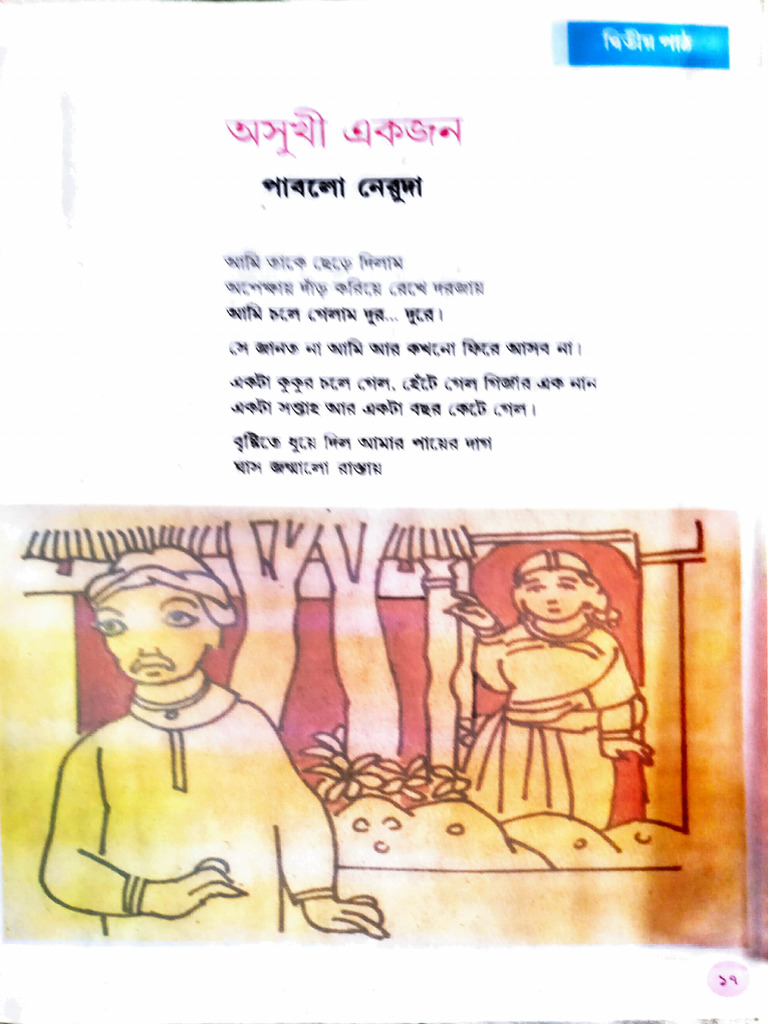 দ্বিতীয় পাঠ
অসুখী একজন
পাবলো নেরুদা
আমি তাকে ছেড়ে দিলাম
অপেক্ষায় দাঁড় করিয়ে রেখে দরজায়
আমি চলে গেলাম দূর... দূরে।
সে জানত না আমি আর কখনো ফিরে আসব না।
একটা কুকুর চলে গেল, হেঁটে গেল গির্জার এক নান
একটা সপ্তাহ আর একটা বছর কেটে গেল।
বৃষ্টিতে ধুয়ে দিল আমার পায়ের দাগ
ঘাস জন্মালো রাস্তায়
১৭